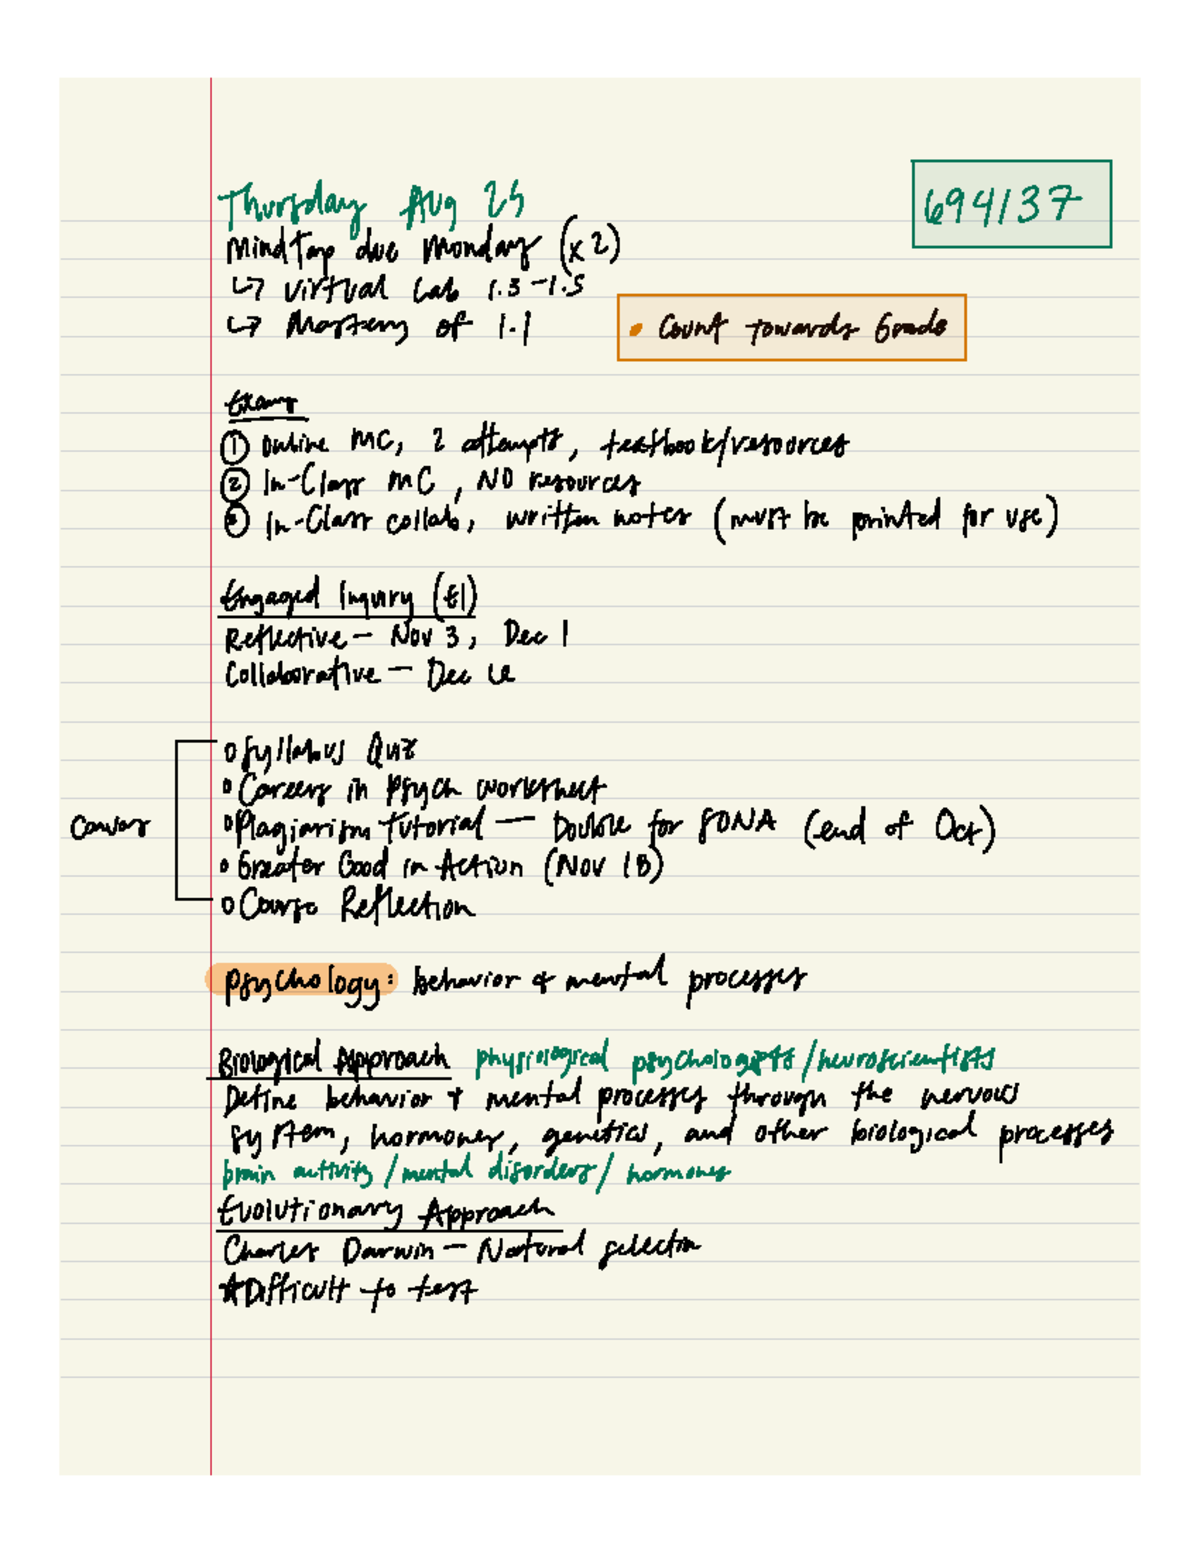 Thursday Aug 25
694137
MindTap due Monday (x2)
↳ Virtual Lab 1.3-1.5
↳ Mastery of 1.1
• Count towards Grade
Exams
① Online MC, 2 attempts, textbook/resources
② In-Class MC, NO resources
③ In-Class collab, written notes (must be printed for use)
Engaged Inquiry (EI)
Reflective - Nov 3, Dec 1
Collaborative - Dec
Canvas
○ Syllabus Quiz
○ Careers in Psych worksheet
○ Plagiarism Tutorial — Double for SONA (end of Oct)
○ Greater Good in Action (Nov 18)
○ Course Reflection
Psychology: behavior & mental processes
Biological Approach physiological psychologists/neuroscientists
Define behavior & mental processes through the nervous
system, hormones, genetics, and other biological processes
brain activity/mental disorders/hormones
Evolutionary Approach
Charles Darwin - Natural selection
★Difficult to test